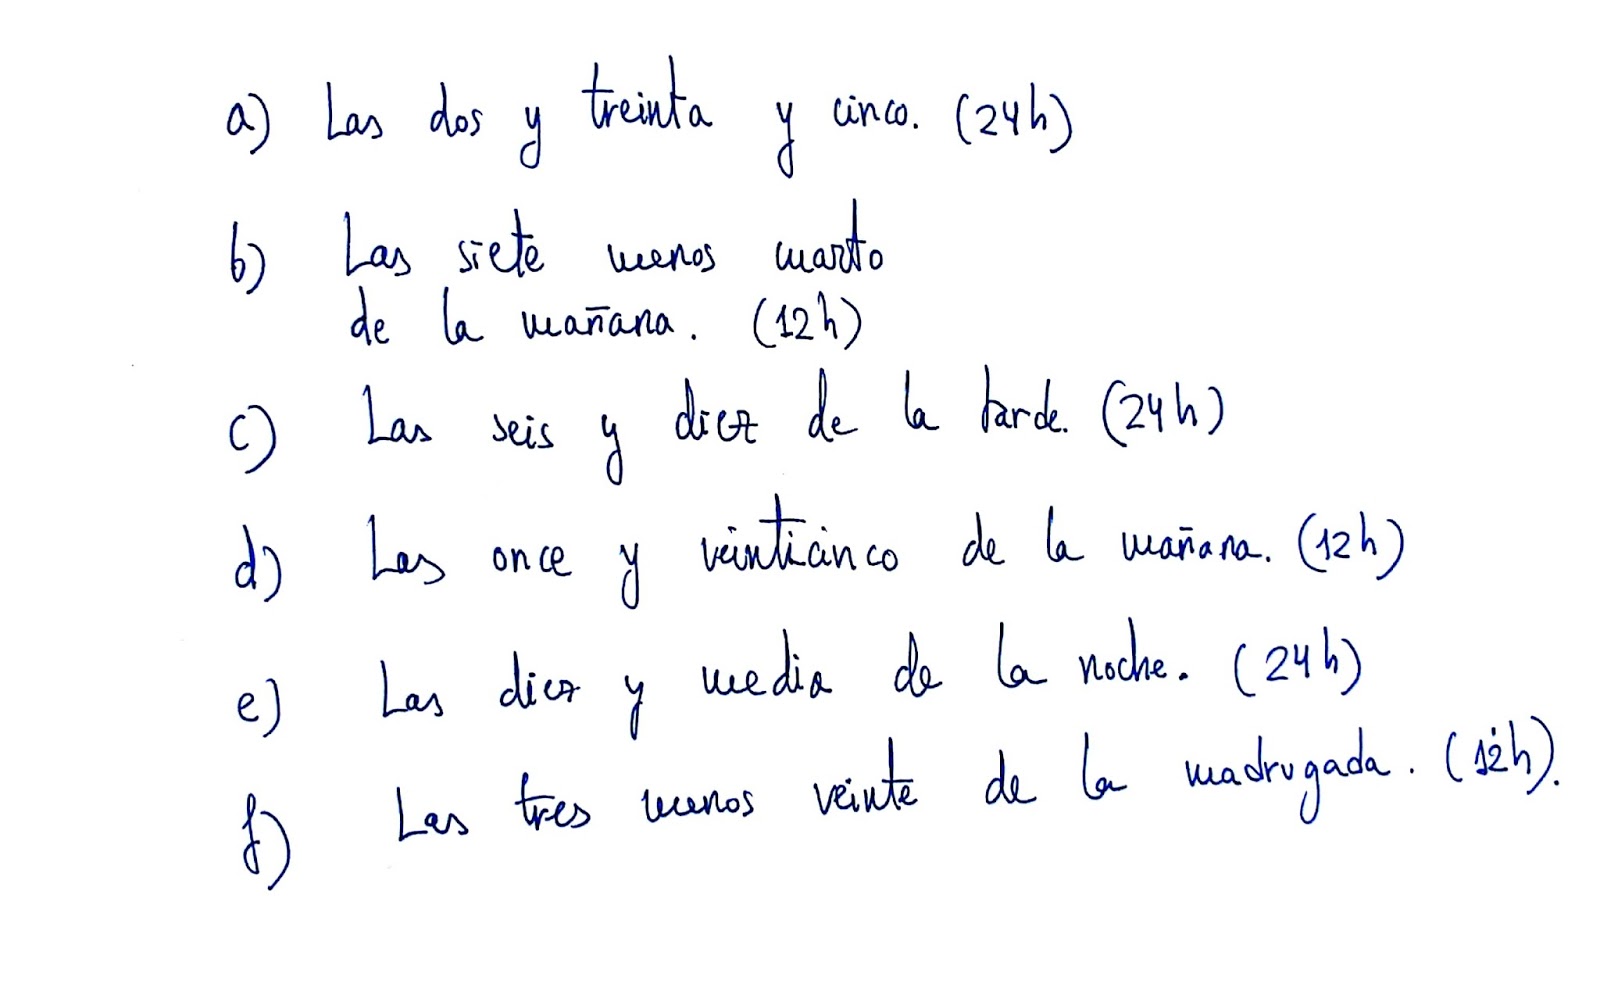 a) Las dos y treinta y cinco. (24h)
b) Las siete menos cuarto
de la mañana. (12h)
c) Las seis y diez de la tarde. (24h)
d) Las once y veinticinco de la mañana. (12h)
e) Las diez y media de la noche. (24h)
f) Las tres menos veinte de la madrugada. (12h).